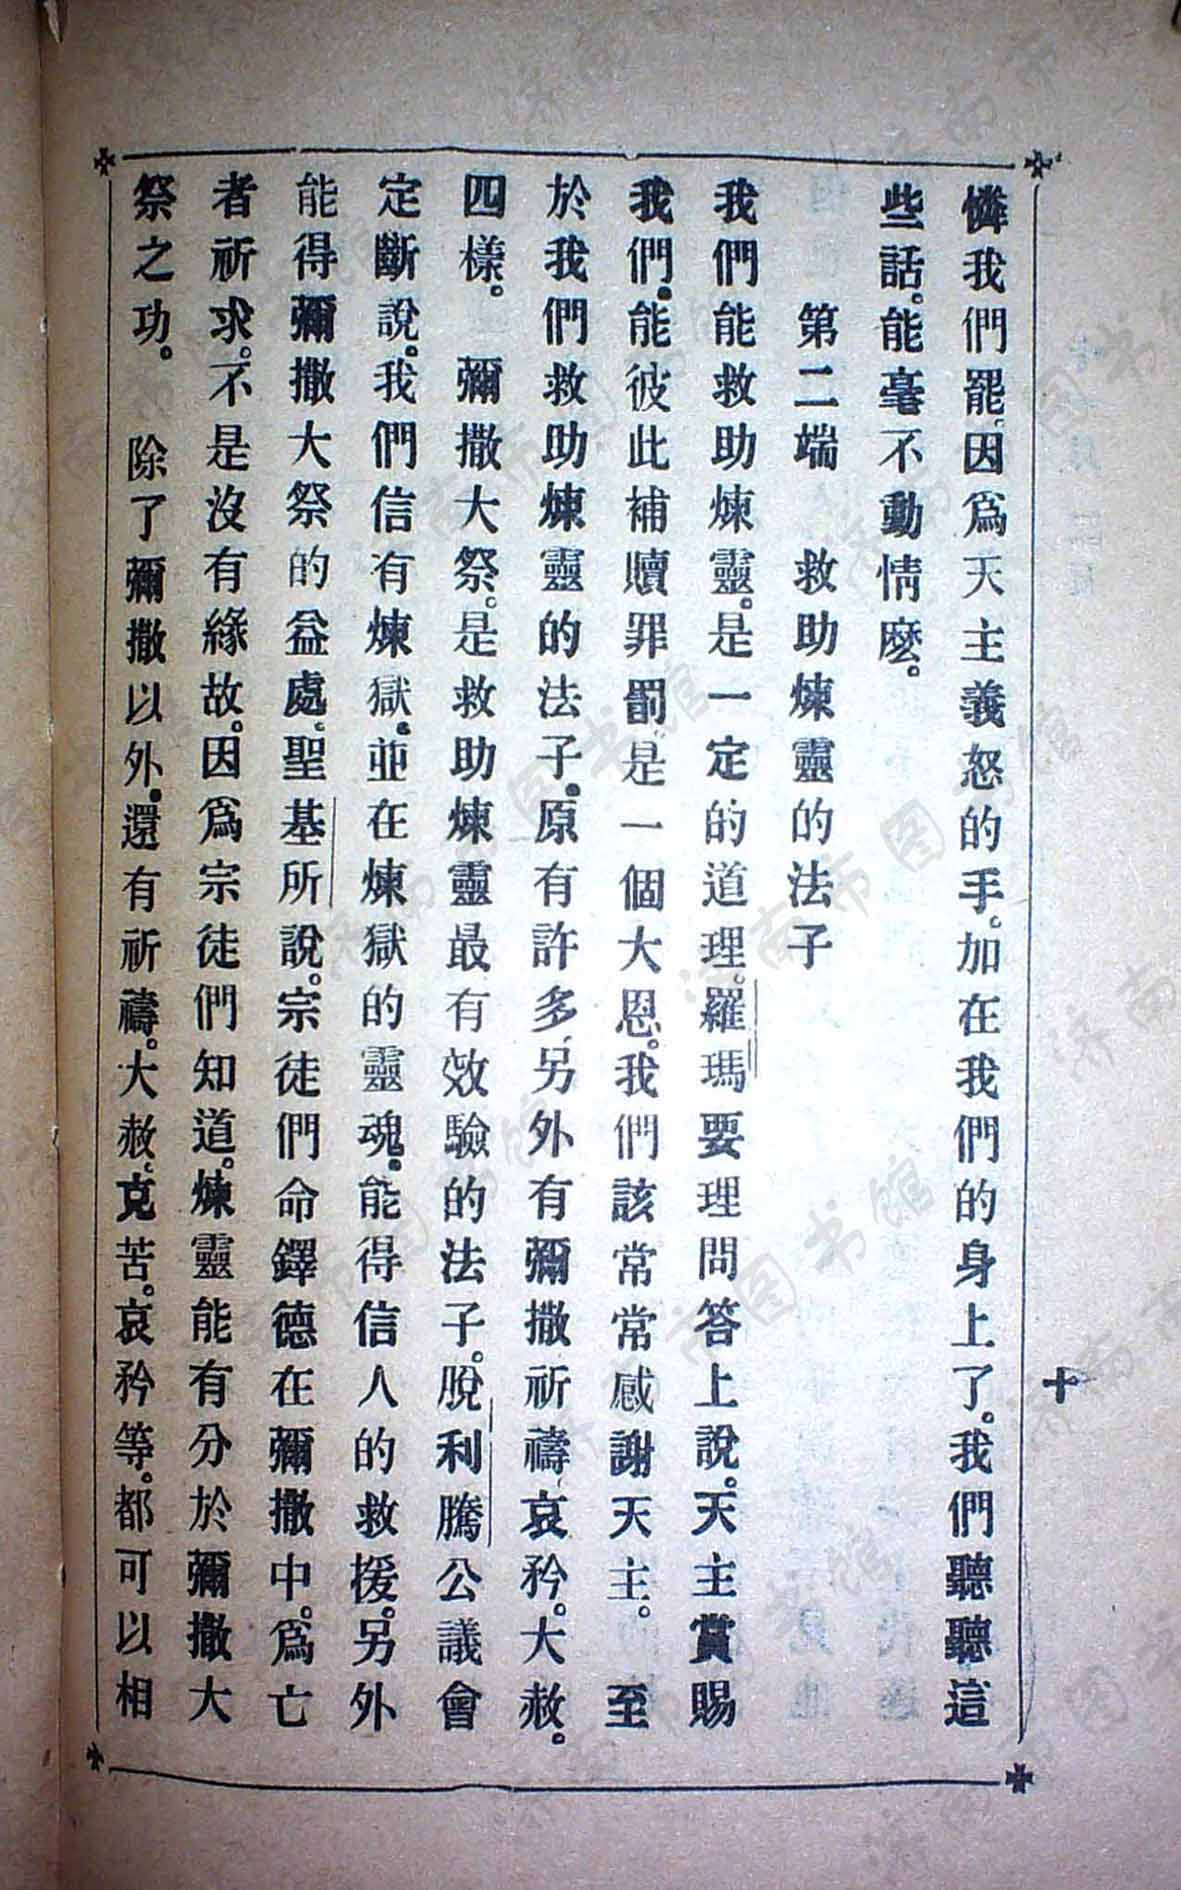 憐我們罷、因爲天主義怒的手。加在我們的身上了。我們聽聽這
些話。能毫不動情麽。
第二端　救助煉靈的法子
我們能救助煉靈。是一定的道理。羅瑪要理問答上說。天主賞賜
我們。能彼此補贖罪罰是一個大恩。我們該常常感謝天主。　至
於我們救助煉靈的法子。原有許多、另外有彌撒祈禱、哀矜。大赦。
四樣。　彌撒大祭。是救助煉靈最有效驗的法子。脫利騰公議會
定斷說。我們信有煉獄。並在煉獄的靈魂。能得信人的救援。另外
能得彌撒大祭的益處。聖基所說。宗徒們命鐸德在彌撒中。爲亡
者祈求。不是沒有緣故。因爲宗徒們知道。煉靈能有分於彌撒大
祭之功。　除了彌撒以外。還有祈禱。大赦、克苦。哀矜等。都可以相
十
济南市图书馆